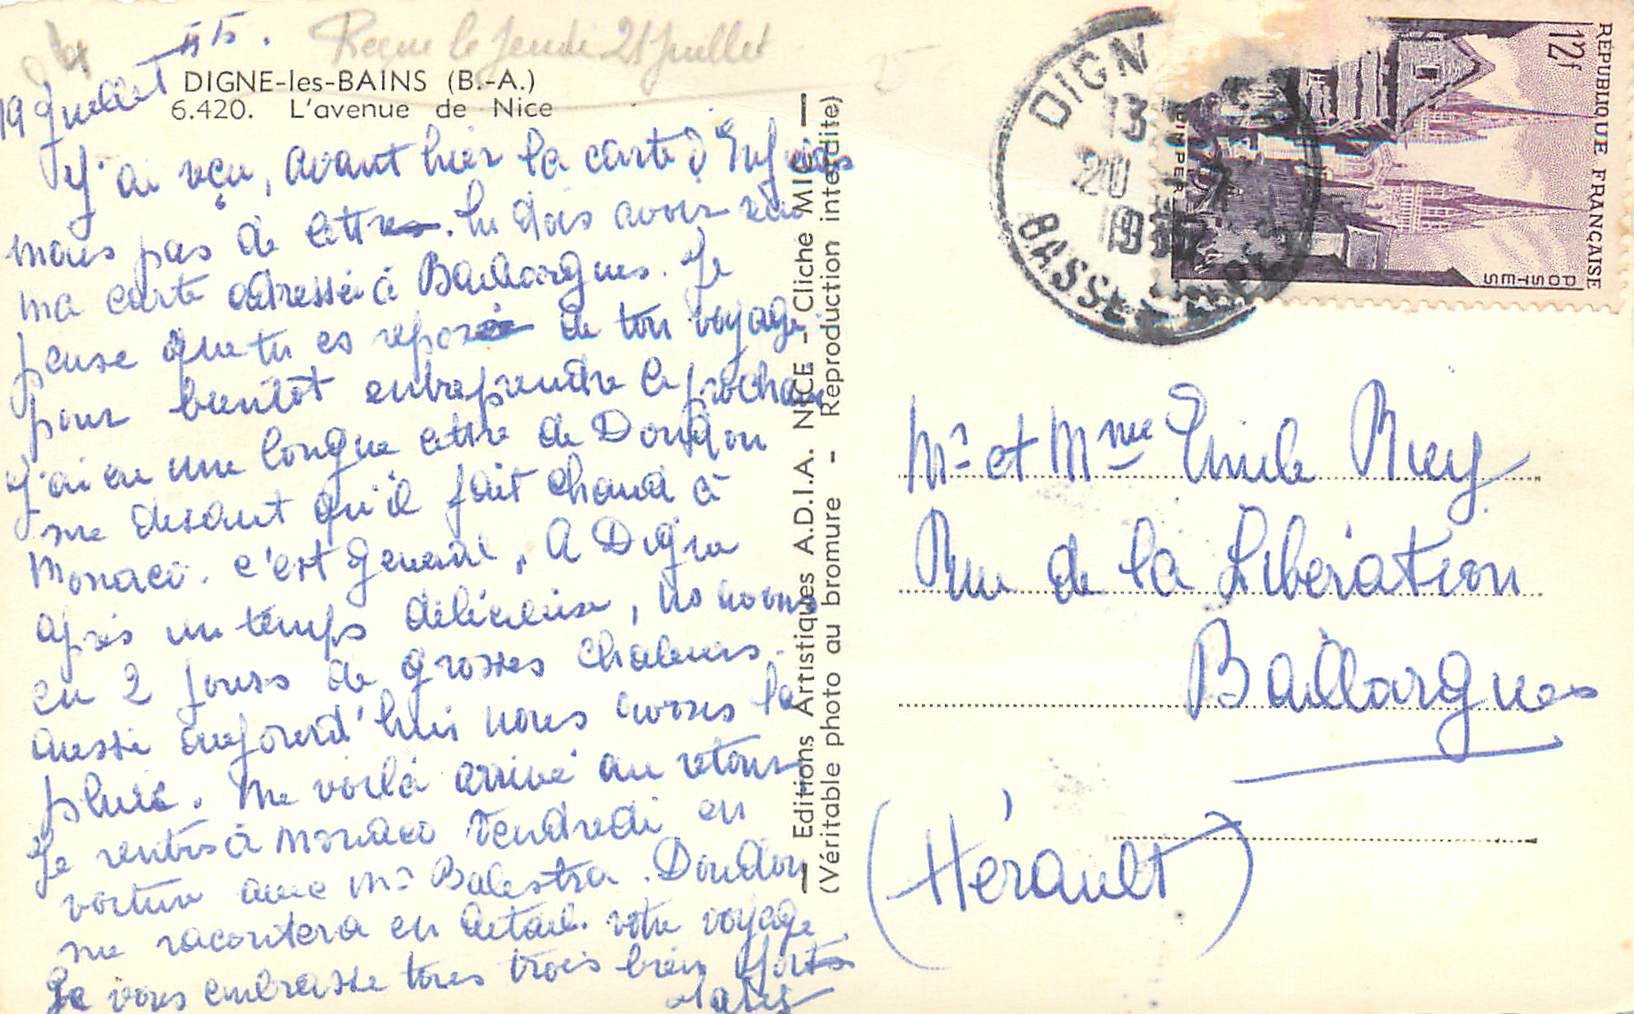 19 Juillet 55.
Reçue le Jeudi 21 Juillet
DIGNE-les-BAINS (B.-A.)
6.420. L'avenue de Nice
J'ai reçu, avant hier la carte d'
mais pas de lettre. Tu dois avoir reçu
ma carte adressée à Baillargues. Je
pense que tu es reposée de ton voyage
pour bientôt entreprendre le prochain
J'ai eu une longue lettre de Doudou
me disant qu'il fait chaud à
Monaco. c'est général, A Digne
après un temps délicieux, nous avons
eu 2 jours de grosses chaleurs.
aussi aujourd'hui nous avons la
pluie. Me voilà arrivé au retour
Je rentre à Monaco Vendredi en
voiture avec Mr Balestra. Doudou
me racontera en détail votre voyage.
Je vous embrasse tous trois bien fort
— Editions Artistiques A.D.I.A. NICE - Cliché MIC —
(Véritable photo au bromure - Reproduction interdite)
DIGN
13
20
BASSES
RÉPUBLIQUE FRANÇAISE
12f
POSTES
QUIMPER
Mr et Mme Emile Rey
Rue de la Libération
Baillargues
(Hérault)